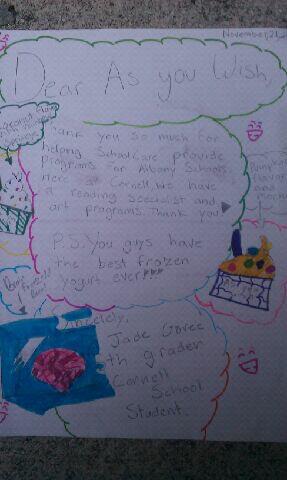 November, 21
Dear As you Wish,
Thank you so much for
helping SchoolCare provide
programs for Albany Schools.
Here at Cornell, we have
a reading specialist and
art programs. Thank you!
P.S. You guys have
the best frozen
yogurt ever!!!
Sincerely,
Jade
th grader
Cornell
School
Student.